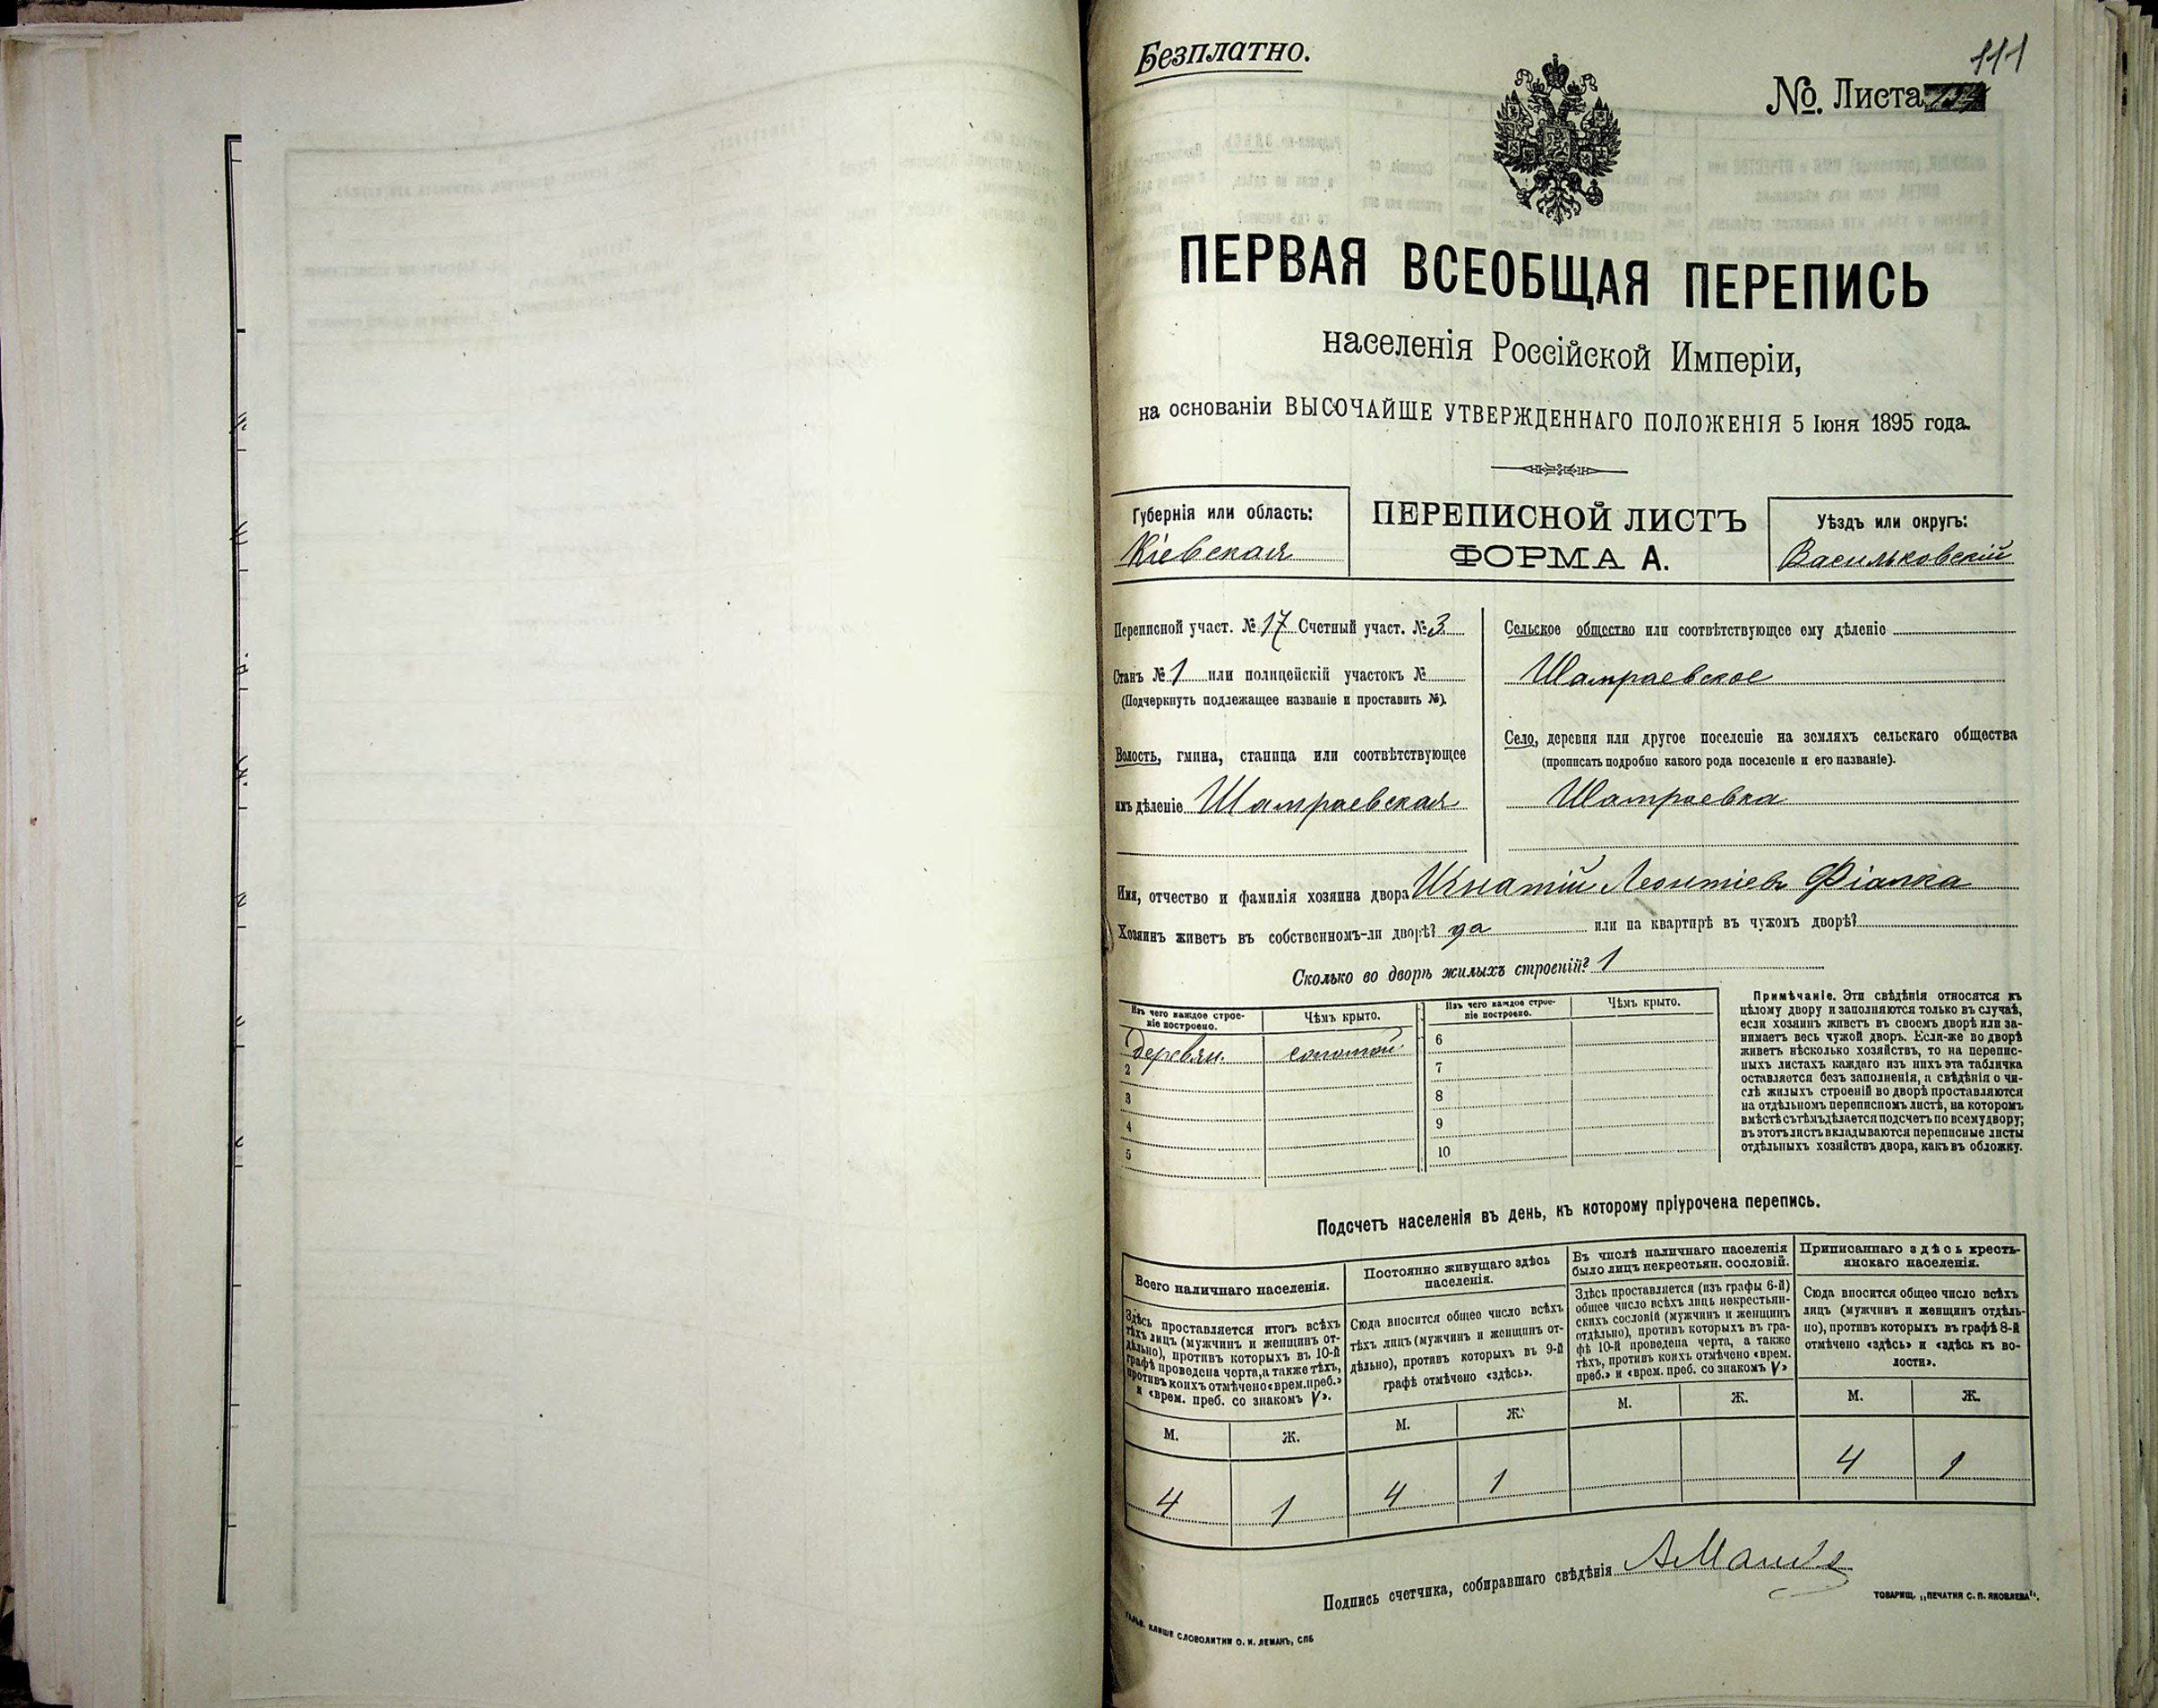 Безплатно.
111
№. Листа
ПЕРВАЯ ВСЕОБЩАЯ ПЕРЕПИСЬ
населенія Россійской Имперіи,
на основаніи ВЫСОЧАЙШЕ УТВЕРЖДЕННАГО ПОЛОЖЕНІЯ 5 Іюня 1895 года.
Губернія или область:
Кіевская
ПЕРЕПИСНОЙ ЛИСТЪ
ФОРМА А.
Уѣздъ или округъ:
Васильковскій
Переписной участ. № 17 Счетный участ. № 3
Станъ № 1 или полицейскій участокъ №
(Подчеркнуть подлежащее названіе и проставить №).
Волость, гмина, станица или соотвѣтствующее
имъ дѣленіе Шамраевская
Сельское общество или соотвѣтствующее ему дѣленіе
Шамраевское
Село, деревня или другое поселеніе на земляхъ сельскаго общества
(прописать подробно какого рода поселеніе и его названіе).
Шамраевка
Имя, отчество и фамилія хозяина двора Игнатій Леонтіевъ Фіалка
Хозяинъ живетъ въ собственномъ-ли дворѣ? да или на квартирѣ въ чужомъ дворѣ?
Сколько во дворѣ жилыхъ строеній? 1
Изъ чего каждое строе-
ніе построено.
Чѣмъ крыто.
деревян. соломой
2
3
4
5
Изъ чего каждое строе-
ніе построено.
Чѣмъ крыто.
6
7
8
9
10
Примѣчаніе. Эти свѣдѣнія относятся къ
цѣлому двору и заполняются только въ случаѣ,
если хозяинъ живетъ въ своемъ дворѣ или за-
нимаетъ весь чужой дворъ. Если-же во дворѣ
живетъ нѣсколько хозяйствъ, то на перепис-
ныхъ листахъ каждаго изъ нихъ эта табличка
оставляется безъ заполненія, а свѣдѣнія о чи-
слѣ жилыхъ строеній во дворѣ проставляются
на отдѣльномъ переписномъ листѣ, на которомъ
вмѣстѣ съ тѣмъ дѣлается подсчетъ по всему двору;
въ этотъ листъ вкладываются переписные листы
отдѣльныхъ хозяйствъ двора, какъ въ обложку.
Подсчетъ населенія въ день, къ которому пріурочена перепись.
Всего наличнаго населенія.
Здѣсь проставляется итогъ всѣхъ
тѣхъ лицъ (мужчинъ и женщинъ от-
дѣльно), противъ которыхъ въ 10-й
графѣ проведена черта, а также тѣхъ,
противъ коихъ отмѣчено «врем. преб.»
и «врем. преб. со знакомъ V».
М. Ж.
4 1
Постоянно живущаго здѣсь
населенія.
Сюда вносится общее число всѣхъ
тѣхъ лицъ (мужчинъ и женщинъ от-
дѣльно), противъ которыхъ въ 9-й
графѣ отмѣчено «здѣсь».
М. Ж.
4 1
Въ числѣ наличнаго населенія
было лицъ некрестьян. сословій.
Здѣсь проставляется (изъ графы 6-й)
общее число всѣхъ лицъ некрестьян-
скихъ сословій (мужчинъ и женщинъ
отдѣльно), противъ которыхъ въ гра-
фѣ 10-й проведена черта, а также
тѣхъ, противъ коихъ отмѣчено «врем.
преб.» и «врем. преб. со знакомъ V»
М. Ж.
Приписаннаго здѣсь кресть-
янскаго населенія.
Сюда вносится общее число всѣхъ
лицъ (мужчинъ и женщинъ отдѣль-
но), противъ которыхъ въ графѣ 8-й
отмѣчено «здѣсь» и «здѣсь къ во-
лости».
М. Ж.
4 1
Подпись счетчика, собиравшаго свѣдѣнія
ТОВАРИЩ. „ПЕЧАТНЯ С. П. ЯКОВЛЕВА".
КЛИШЕ СЛОВОЛИТНИ О. И. ЛЕМАНЪ, СПБ